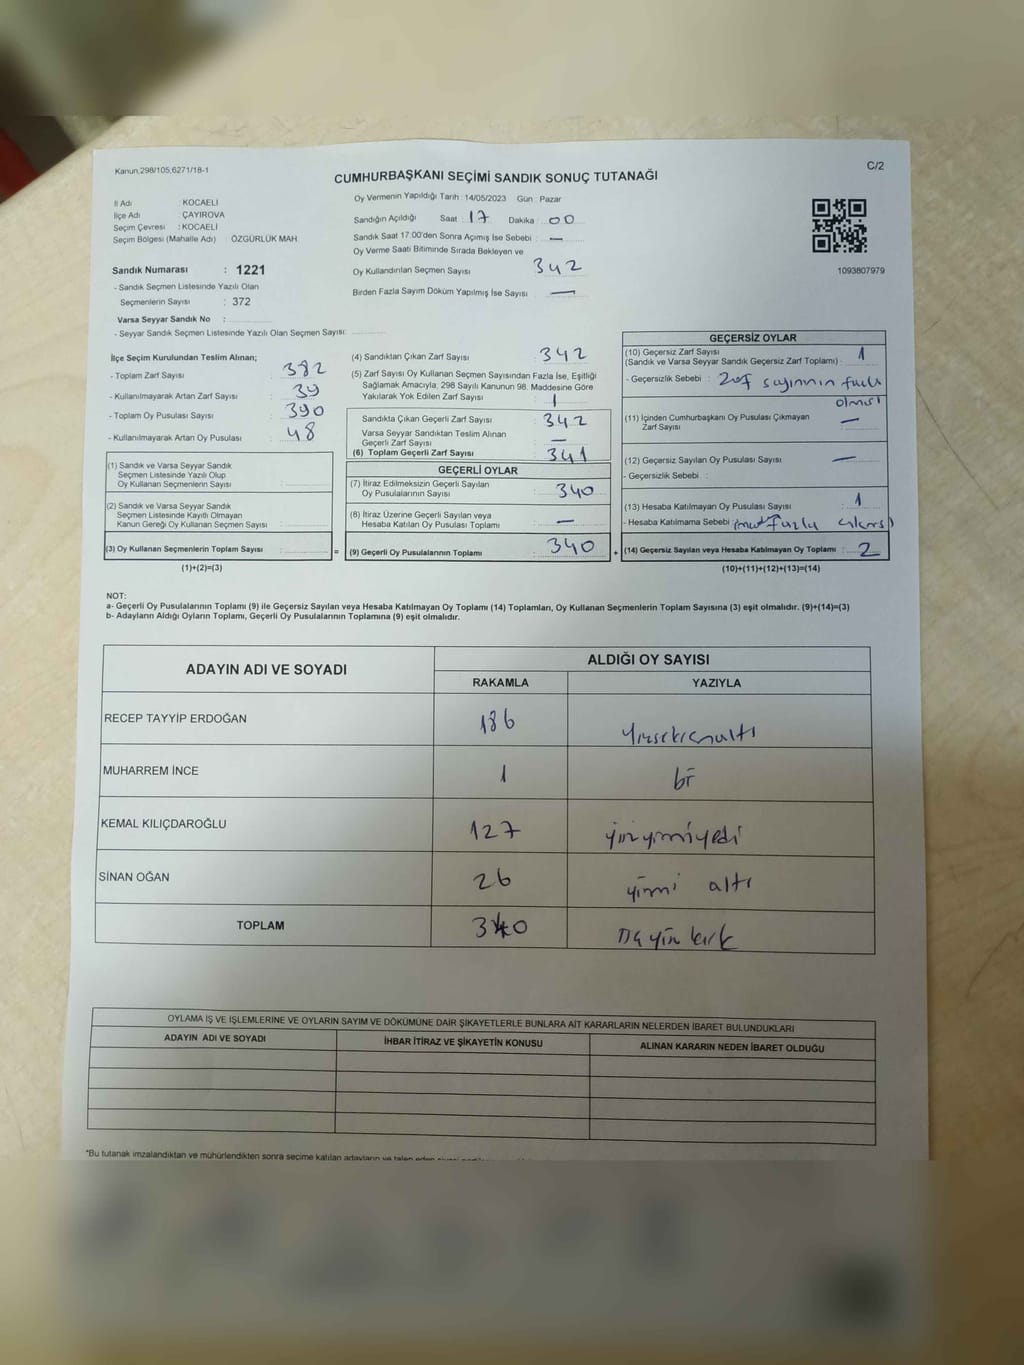 Kanun,298/105,6271/18-1
C/2
CUMHURBAŞKANI SEÇİMİ SANDIK SONUÇ TUTANAĞI
İl Adı : KOCAELİ
İlçe Adı : ÇAYIROVA
Seçim Çevresi : KOCAELİ
Seçim Bölgesi (Mahalle Adı) : ÖZGÜRLÜK MAH.
Sandık Numarası : 1221
- Sandık Seçmen Listesinde Yazılı Olan
Seçmenlerin Sayısı : 372
Varsa Seyyar Sandık No :
- Seyyar Sandık Seçmen Listesinde Yazılı Olan Seçmen Sayısı:
Oy Vermenin Yapıldığı Tarih : 14/05/2023 Gün : Pazar
Sandığın Açıldığı Saat : 17 Dakika : 00
Sandık Saat 17:00'den Sonra Açımış İse Sebebi : —
Oy Verme Saati Bitiminde Sırada Bekleyen ve
Oy Kullandırılan Seçmen Sayısı 342
Birden Fazla Sayım Döküm Yapılmış İse Sayısı : —
1093807979
İlçe Seçim Kurulundan Teslim Alınan;
- Toplam Zarf Sayısı : 382
- Kullanılmayarak Artan Zarf Sayısı : 39
- Toplam Oy Pusulası Sayısı : 390
- Kullanılmayarak Artan Oy Pusulası : 48
(1) Sandık ve Varsa Seyyar Sandık
Seçmen Listesinde Yazılı Olup
Oy Kullanan Seçmenlerin Sayısı :
(2) Sandık ve Varsa Seyyar Sandık
Seçmen Listesinde Kayıtlı Olmayan
Kanun Gereği Oy Kullanan Seçmen Sayısı :
(3) Oy Kullanan Seçmenlerin Toplam Sayısı :
(1)+(2)=(3)
(4) Sandıktan Çıkan Zarf Sayısı : 342
(5) Zarf Sayısı Oy Kullanan Seçmen Sayısından Fazla İse, Eşitliği
Sağlamak Amacıyla, 298 Sayılı Kanunun 98. Maddesine Göre
Yakılarak Yok Edilen Zarf Sayısı : 1
Sandıkta Çıkan Geçerli Zarf Sayısı : 342
Varsa Seyyar Sandıktan Teslim Alınan
Geçerli Zarf Sayısı : —
(6) Toplam Geçerli Zarf Sayısı : 341
GEÇERLİ OYLAR
(7) İtiraz Edilmeksizin Geçerli Sayılan
Oy Pusulalarının Sayısı : 340
(8) İtiraz Üzerine Geçerli Sayılan veya
Hesaba Katılan Oy Pusulası Toplamı : —
= (9) Geçerli Oy Pusulalarının Toplamı : 340
GEÇERSİZ OYLAR
(10) Geçersiz Zarf Sayısı
(Sandık ve Varsa Seyyar Sandık Geçersiz Zarf Toplamı) : 1
- Geçersizlik Sebebi : Zarf sayısının fazla
olması
(11) İçinden Cumhurbaşkanı Oy Pusulası Çıkmayan
Zarf Sayısı : —
(12) Geçersiz Sayılan Oy Pusulası Sayısı : —
- Geçersizlik Sebebi :
(13) Hesaba Katılmayan Oy Pusulası Sayısı : 1
- Hesaba Katılmama Sebebi : fazla çıkması
+ (14) Geçersiz Sayılan veya Hesaba Katılmayan Oy Toplamı : 2
(10)+(11)+(12)+(13)=(14)
NOT:
a- Geçerli Oy Pusulalarının Toplamı (9) ile Geçersiz Sayılan veya Hesaba Katılmayan Oy Toplamı (14) Toplamları, Oy Kullanan Seçmenlerin Toplam Sayısına (3) eşit olmalıdır. (9)+(14)=(3)
b- Adayların Aldığı Oyların Toplamı, Geçerli Oy Pusulalarının Toplamına (9) eşit olmalıdır.
ADAYIN ADI VE SOYADI
ALDIĞI OY SAYISI
RAKAMLA YAZIYLA
RECEP TAYYİP ERDOĞAN 186 Yüzseksenaltı
MUHARREM İNCE 1 bir
KEMAL KILIÇDAROĞLU 127 yüzyirmiyedi
SİNAN OĞAN 26 yirmi altı
TOPLAM 340 üç yüz kırk
OYLAMA İŞ VE İŞLEMLERİNE VE OYLARIN SAYIM VE DÖKÜMÜNE DAİR ŞİKAYETLERLE BUNLARA AİT KARARLARIN NELERDEN İBARET BULUNDUKLARI
ADAYIN ADI VE SOYADI İHBAR İTİRAZ VE ŞİKAYETİN KONUSU ALINAN KARARIN NEDEN İBARET OLDUĞU
*Bu tutanak imzalandıktan ve mühürlendikten sonra seçime katılan adayların ve talep eden